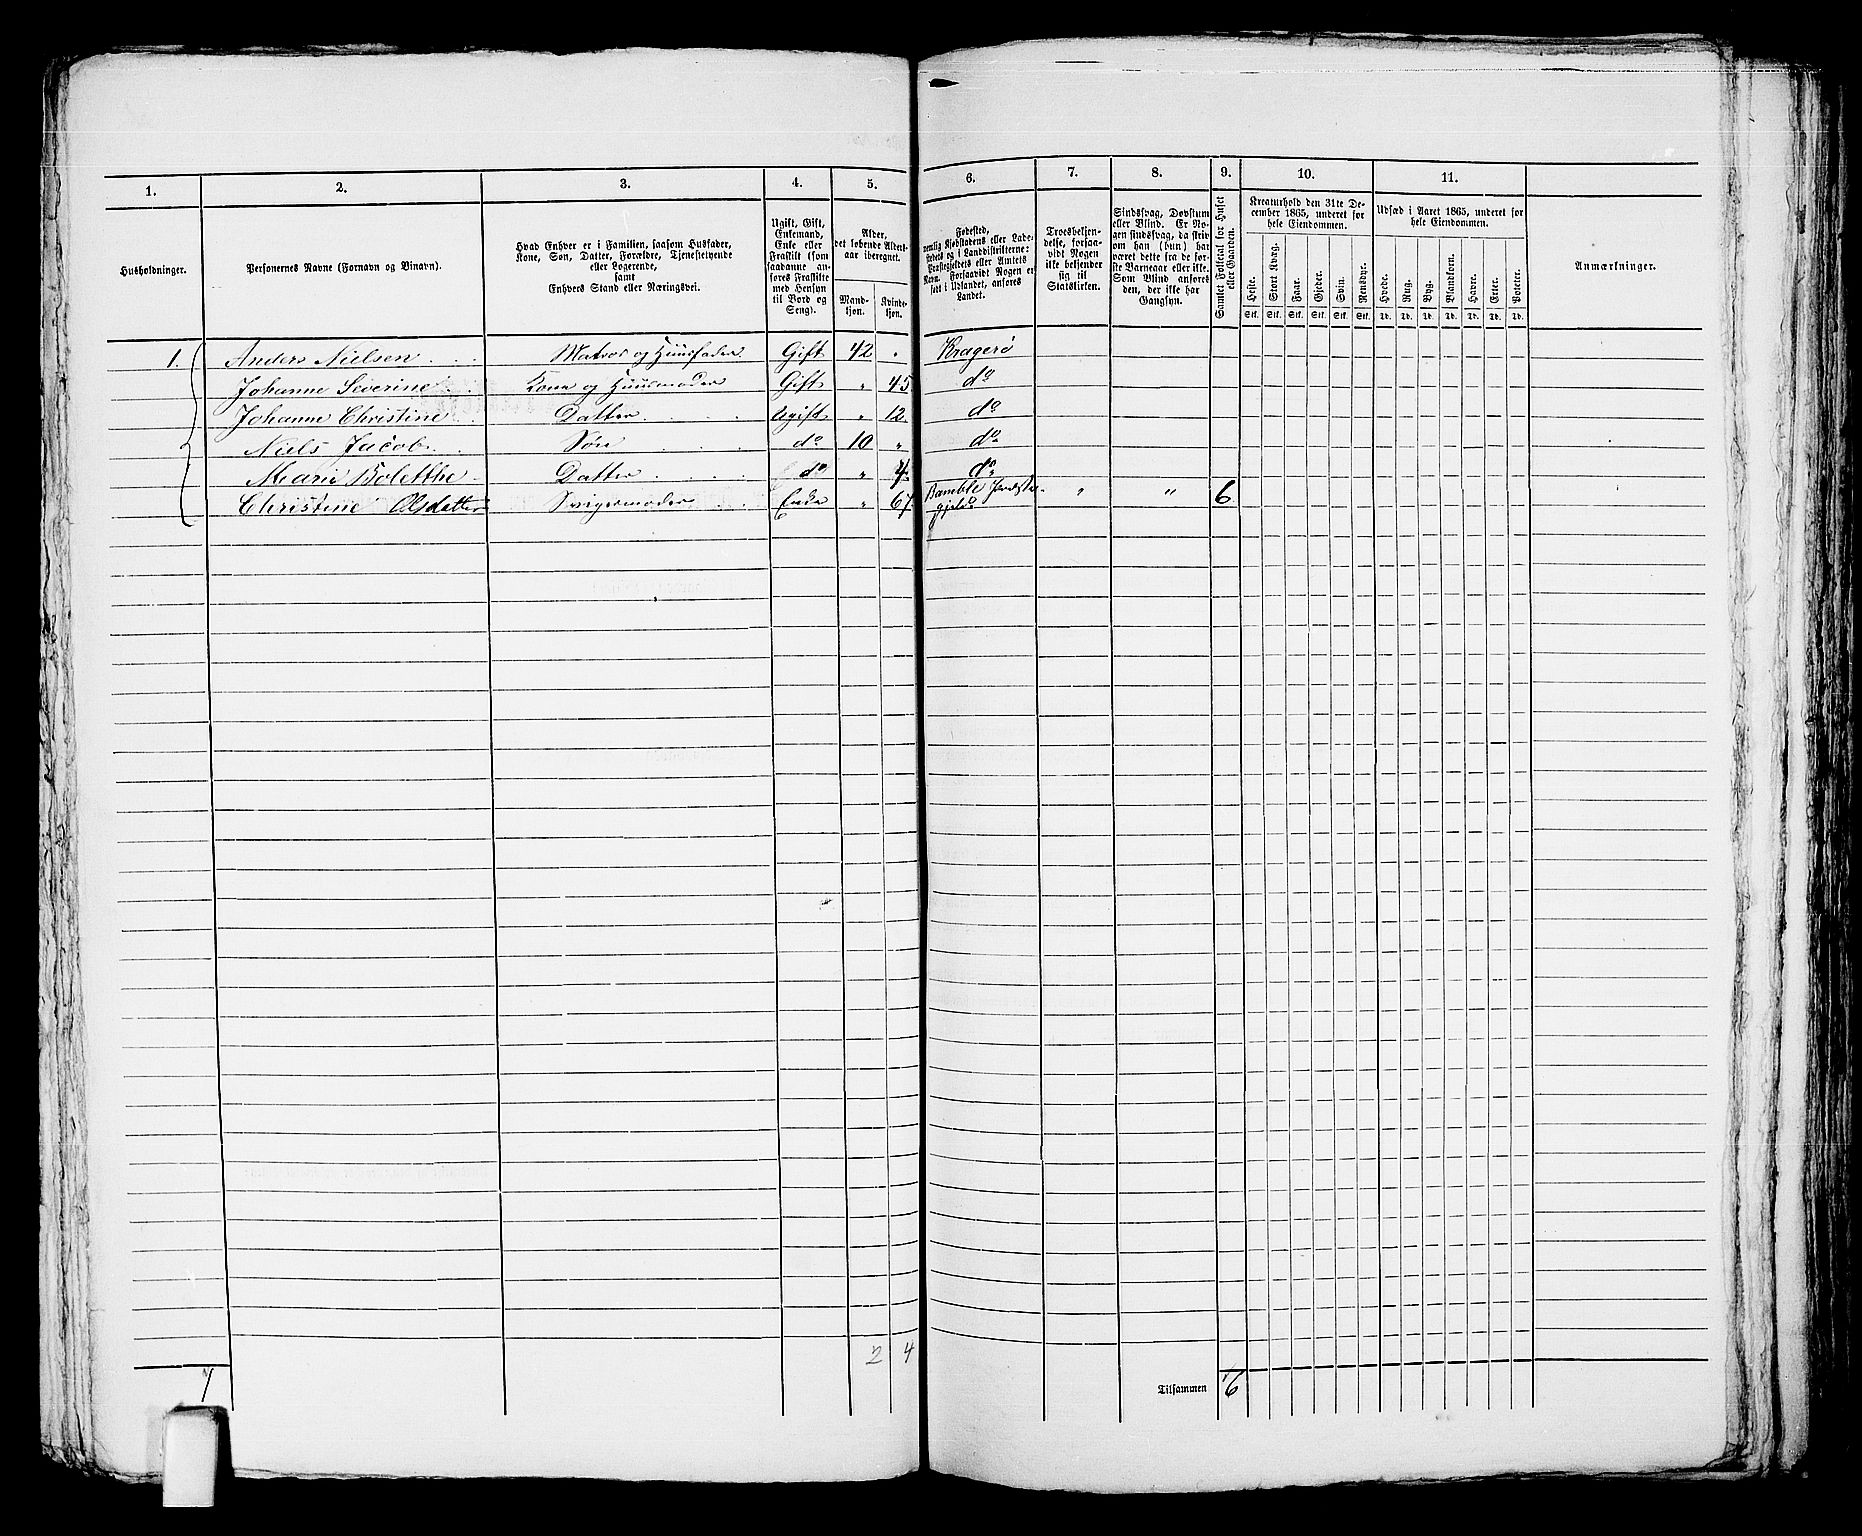 1. 2. 3. 4. 5. 6. 7. 8. 9. 10. 11.
Husholdninger.
Personernes Navne (Fornavn og Binavn).
Hvad Enhver er i Familien, saasom Husfader,
Kone, Søn, Datter, Forældre, Tjenestetyende
eller Logerende,
samt
Enhvers Stand eller Næringsvei.
Ugift, Gift,
Enkemand,
Enke eller
Fraskilt (som
saadanne an-
føres Fraskilte
med Hensyn
til Bord og
Seng).
Alder,
det løbende Alders-
aar iberegnet.
Mand-
kjøn.
Kvinde-
kjøn.
Fødested,
nemlig Kjøbstadens eller Lade-
stedets og i Landdistrikterne:
Præstegjeldets eller Amtets
Navn. Forsaavidt Nogen er
født i Udlandet, anføres
Landet.
Troesbekjen-
delse, forsaa-
vidt Nogen
ikke bekjender
sig til
Statskirken.
Sindssvag, Døvstum
eller Blind. Er No-
gen sindssvag, da skriv
om han (hun) har
været dette fra de før-
ste Barneaar eller ikke.
Som Blind anføres
den, der ikke har
Gangsyn.
Samlet Folketal for Huset
eller Gaarden.
Kreaturhold den 31te De-
cember 1865, underet for
hele Eiendommen.
Heste. Stort Kvæg. Faar. Gjeder. Svin. Rensdyr.
Stk. Stk. Stk. Stk. Stk. Stk.
Udsæd i Aaret 1865, underet for
hele Eiendommen.
Hvede. Rug. Byg. Blandkorn. Havre. Erter. Poteter.
Td. Td. Td. Td. Td. Td. Td.
Anmærkninger.
1. Anders Nielsen Matros og Huusfader Gift 42 " Kragerö
Johanne Severine Kone og Huusmoder Gift " 45 do
Johanne Christine Datter Ugift " 12 do
Niels Jacob Søn do 10 " do
Marie Bolethe Datter do " 4 do
Christine Olsdatter Svigermoder Enke " 67 Bamble Præste- " " 6
gjeld
2 4
1 Tilsammen 6